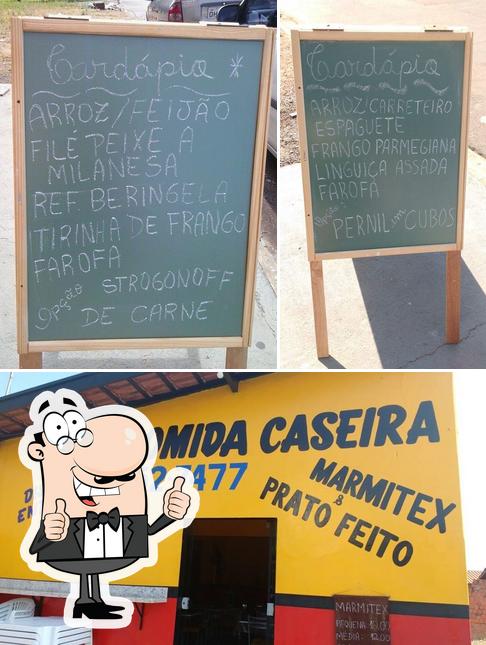 Cardápio *
ARROZ/FEIJÃO
FILÉ PEIXE A
MILANESA
REF BERINGELA
TIRINHA DE FRANGO
FAROFA
opção STROGONOFF
DE CARNE
Cardápio
ARROZ/CARRETEIRO
ESPAGUETE
FRANGO PARMEGIANA
LINGUIÇA ASSADA
FAROFA
opção:
PERNIL em CUBOS
OMIDA CASEIRA
7477
MARMITEX
&
PRATO FEITO
MARMITEX
PEQUENA:
MÉDIA: 12,00